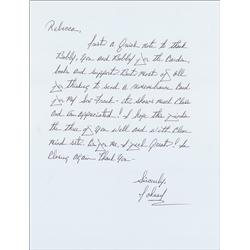 Rebecca,
Just a Quick note to thank
Bobby, you and Bobby for the Cards,
books and support. But most of all
for thinking to send a remembrance Card
for my Son Frank - it shows much Class
and am appreciated! I hope this finds
the three of you well and with Clear
mind site. As for me, I feel Great! In
Closing again Thank You -
Sincerely